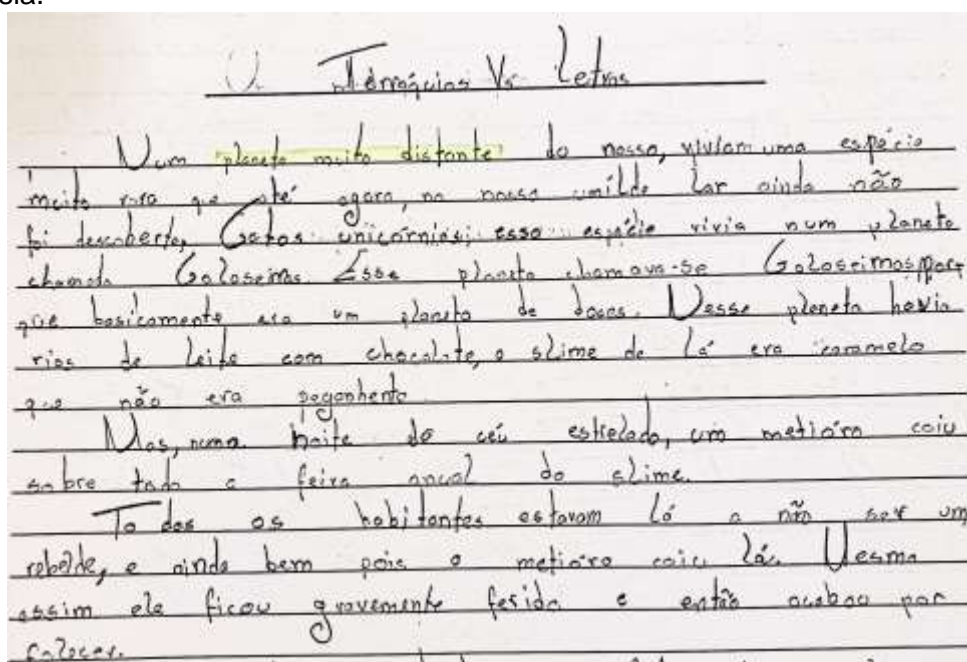 sia.
Vs Letras
Num planeta muito distante do nosso, viviam uma espécie
muito rara que até agora, no nosso umilde lar ainda não
foi descoberta, Gatos unicórnios; essa espécie vivia num planeta
chamado Goloseimas. Esse planeta chamava-se Goloseimas porque
que basicamente era um planeta de doces. Nesse planeta havia
rios de leite com chocolate, o slime de lá era caramelo
que não era pegonhento.
Mas, numa noite do céu estrelado, um metióro caiu
sobre toda a feira anual do slime.
Todos os habitantes estavam lá a não ser um
rebelde, e ainda bem pois o metióro caiu lá. Mesmo
assim ele ficou gravemente ferido e então acabou por
falecer.